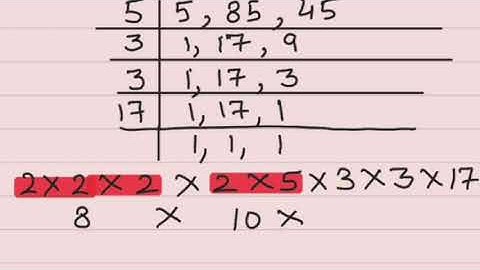 5 5, 85, 45
3 1, 17, 9
3 1, 17, 3
17 1, 17, 1
1, 1, 1
2 × 2 × 2 × 2 × 5 × 3 × 3 × 17
8 × 10 ×